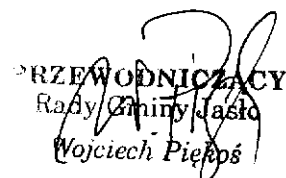 PRZEWODNICZĄCY
Rady Gminy Jasło
Wojciech Piękoś